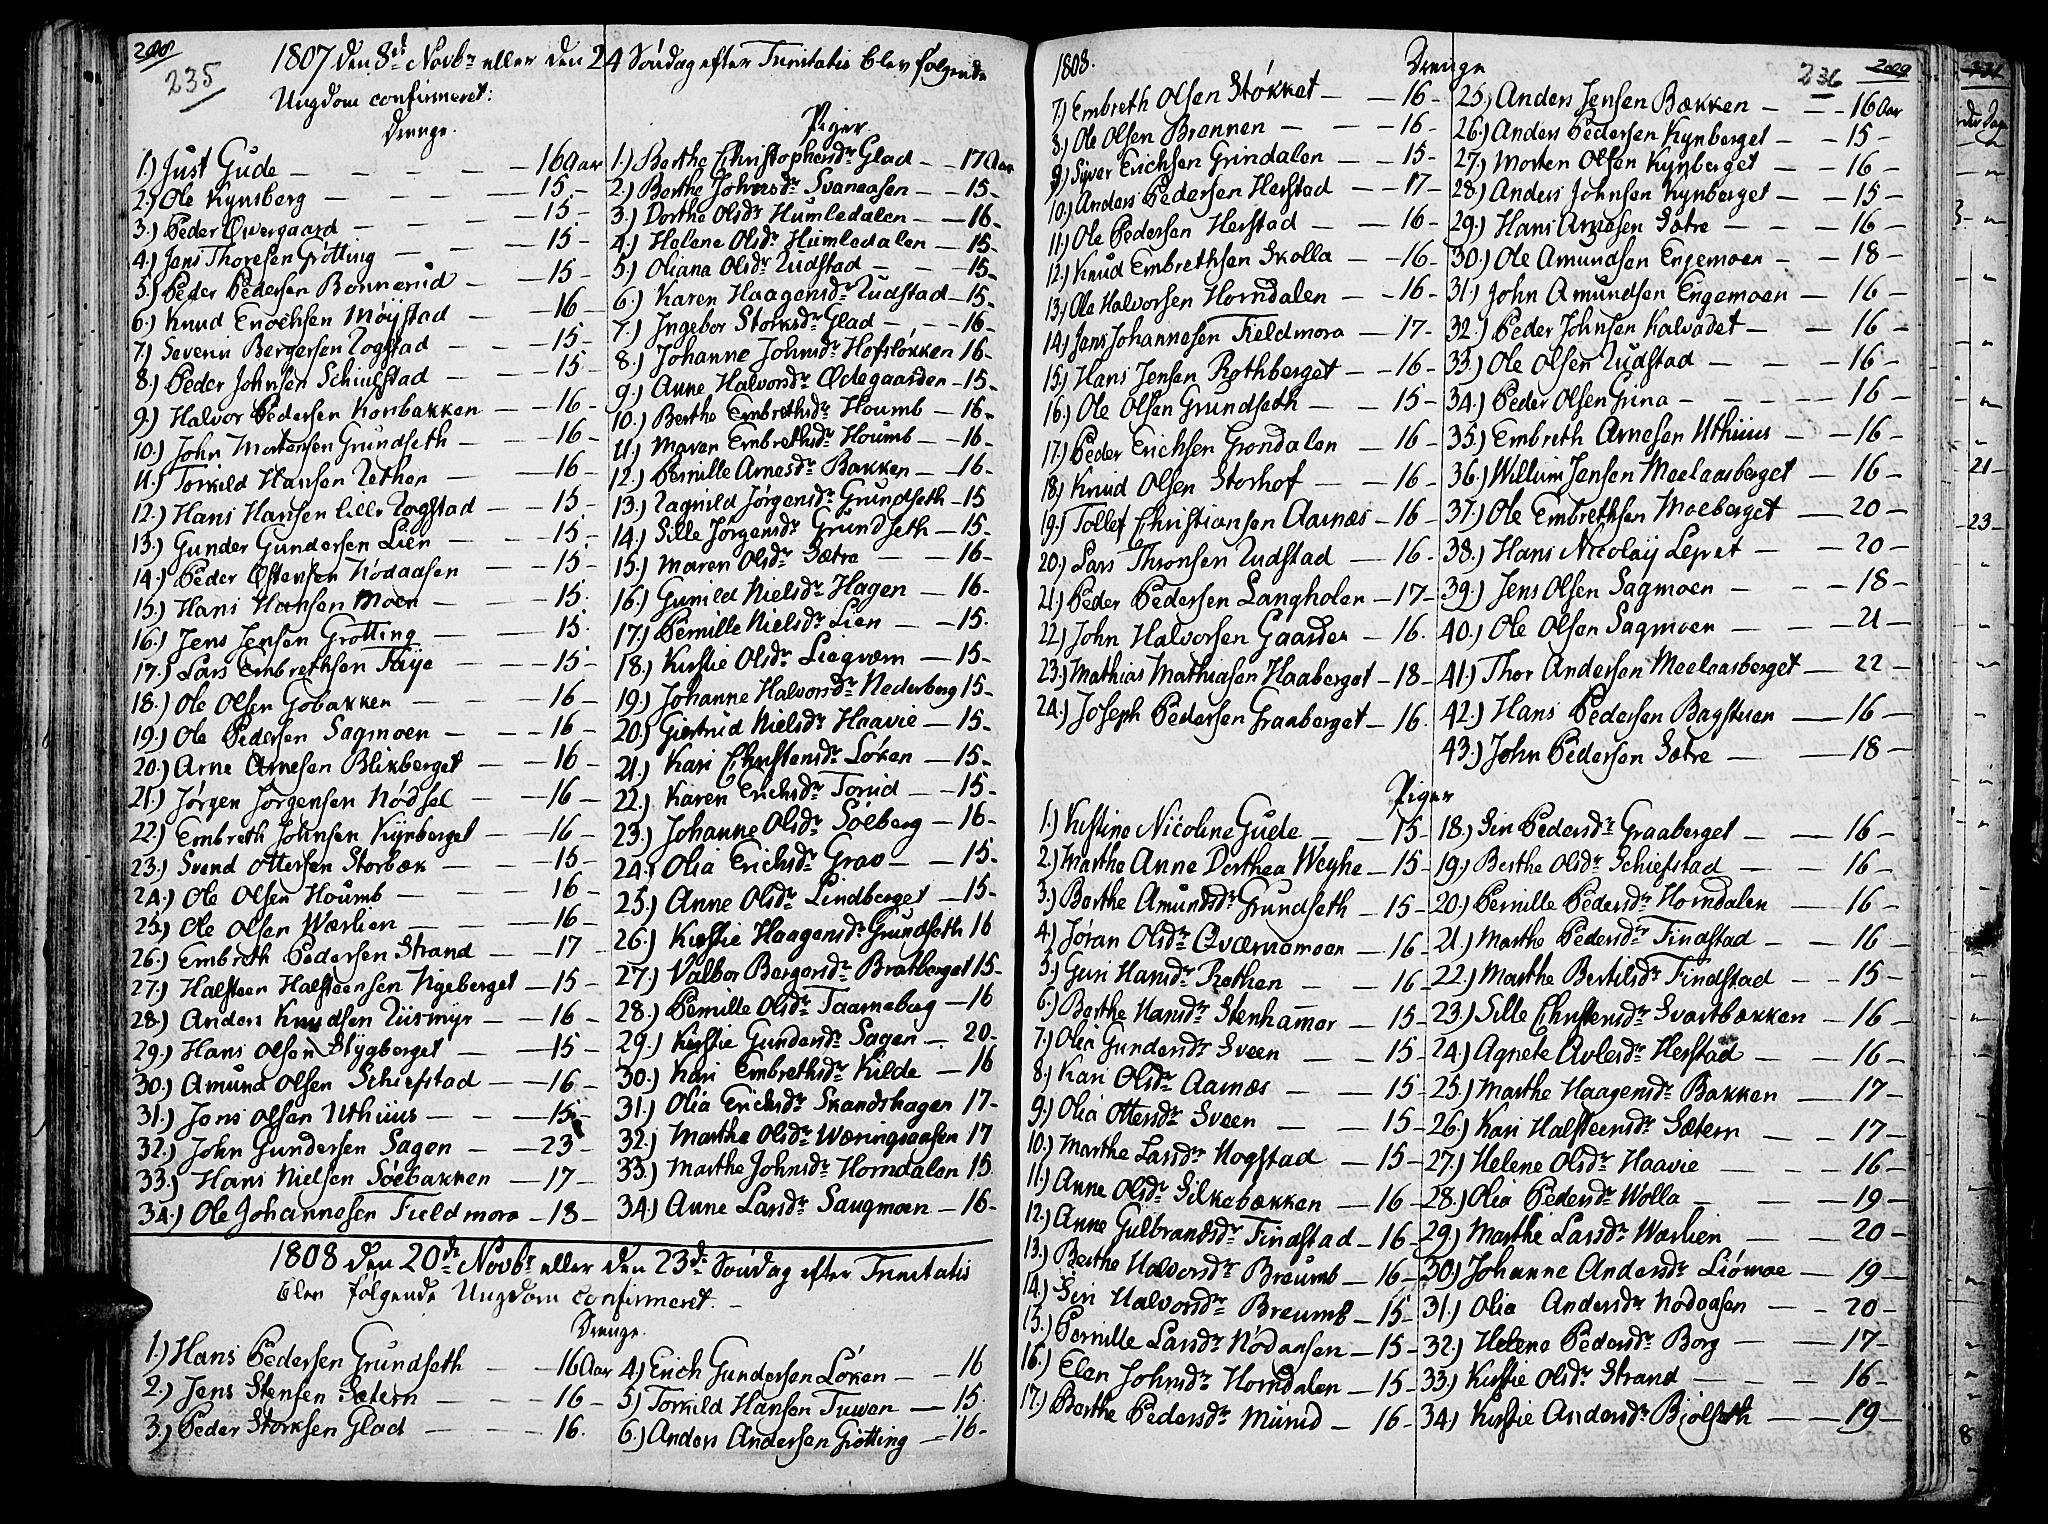 235
1807 den 8d Novbr eller den 24 Søndag efter Trinitatis blev følgende
Ungdom confirmeret:
Drenge.
1.) Just Gude — 16 Aar
2.) Ole Kynsberg — 15 –
3.) Peder Øvergaard — 15 –
4.) Jens Thoresen Grøtting — 15 –
5.) Peder Pedersen Bonnerud — 15 –
6.) Knud Enochsen Møystad — 16 –
7.) Severin Bergersen Rogstad — 15 –
8.) Peder Johnsen Schiefstad — 15 –
9.) Halvor Pedersen Konbakken — 16 –
10.) John Mortensen Grundseth — 16 –
11.) Torkild Hansen Rethen — 16 –
12.) Hans Hansen lille Rogstad — 15 –
13.) Gunder Gundersen Lien — 15 –
14.) Peder Østensen Nødaasen — 15 –
15.) Hans Hansen Moen — 15.
16.) Jens Jensen Grøtting — 15.
17.) Lars Embrethsen Faye — 15 –
18.) Ole Olsen Gobakken — 16 –
19.) Ole Pedersen Sagmoen — 16 –
20.) Arne Arnesen Blikberget — 16 –
21.) Jørgen Jørgensen Nødsel — 16 –
22.) Embreth Johnsen Kynberget — 16 –
23.) Svend Ottersen Storbæk — 15 –
24.) Ole Olsen Houmb — 16 –
25.) Ole Olsen Wærlien — 16 –
26.) Embreth Pedersen Strand — 17 –
27.) Halsteen Halsteensen Nigeberget — 15 –
28.) Anders Knudsen Riismyr — 16 –
29.) Hans Olsen Stygberget — 15 –
30.) Amund Olsen Schiefstad — 16 –
31.) Jens Olsen Uthuus — 15 –
32.) John Gundersen Sagen — 23 –
33.) Hans Nielsen Søebakken — 17 –
34.) Ole Johannesen Fieldmora — 18 –
Piger
1.) Berthe Christophersdr Glad — 17 Aar
2.) Berthe Johnsdr Svaneaasen — 15 –
3.) Dorthe Olsdr Humledalen — 16 –
4.) Helene Olsdr Humledalen — 15 –
5.) Oliana Olsdr Rudstad — 15 –
6.) Karen Haagensdr Rudstad — 15 –
7.) Ingebor Storksdr Glad — 16 –
8.) Johanne Johnsdr Hofsløkken 16 –
9.) Anne Halvorsdr Ødegaarden — 15 –
10.) Berthe Embrethsdr Houmb — 16 –
11.) Maren Embrethsdr Houmb — 16 –
12.) Pernille Arnesdr Bakken — 16 –
13.) Ragnild Jørgensdr Grundseth — 15
14.) Sille Jørgensdr Grundseth — 15 –
15.) Maren Olsdr Sætre — 16 –
16.) Gunild Nielsdr Hagen — 16 –
17.) Pernille Nielsdr Lien — 15.
18.) Kirstie Olsdr Liegværn — 15 –
19.) Johanne Halvorsdr Nederberg 15 –
20.) Giertrud Nielsdr Haavie — 15 –
21.) Kari Christensdr Løken — 15 –
22.) Karen Erichsdr Torud — 15 –
23.) Johanne Olsdr Søeberg — 16 –
24.) Olia Erichsdr Grav — 15 –
25.) Anne Olsdr Lindberget — 15 –
26.) Kirstie Haagensdr Grundseth 16
27.) Valbor Bergersdr Bratberget 15 –
28.) Pernille Olsdr Taarneberg — 16
29.) Kirstie Gundersdr Sagen — 20 –
30.) Kari Embrethsdr Kilde — 16
31.) Olia Erichsdr Skandshagen 17 –
32.) Marthe Olsdr Wæringsaasen 17
33.) Marthe Johnsdr Horndalen 15
34.) Anne Larsdr Saugmoen — 16 –
1808 den 20d Novbr eller den 23d Søndag efter Trinitatis
blev følgende Ungdom confirmeret. –
Drenge.
1.) Hans Pedersen Grundseth — 16 Aar
2.) Jens Stensen Sætern — 16 –
3.) Peder Storksen Glad — 16.
4.) Erich Gundersen Løken — 16
5.) Torkild Hansen Tuwen — 15.
6.) Anders Andersen Grøtting — 16 –
1808.
Drenge
236
2009
7.) Embreth Olsen Støkket — 16 –
8.) Ole Olsen Brønnen — 16 –
9.) Siver Erichsen Grindalen — 15 –
10.) Anders Pedersen Herstad — 17 –
11.) Ole Pedersen Herstad — 16 –
12.) Knud Embrethsen Skolla — 16 –
13.) Ole Halvorsen Horndalen — 16 –
14.) Jens Johannesen Fieldmora — 17 –
15.) Hans Jensen Rothberget — 16 –
16.) Ole Olsen Grundseth — 15 –
17.) Peder Erichsen Grøndalen — 16 –
18.) Knud Olsen Storhof — 16 –
19.) Tollef Christiansen Aarnæs — 16 –
20.) Lars Thronsen Rudstad — 16 –
21.) Peder Pedersen Langholen — 17 –
22.) John Halvorsen Gaarder — 16.
23.) Mathias Mathiasen Haaberget — 18 –
24.) Joseph Pedersen Graaberget — 16.
25.) Anders Jensen Bækken — 16 Aar
26.) Anders Pedersen Kynberget — 15 –
27.) Morten Olsen Kynberget — 16 –
28.) Anders Johnsen Kynberget — 15 –
29.) Hans Arnesen Sætre — 16 –
30.) Ole Amundsen Engemoen — 18 –
31.) John Amundsen Engemoen — 16 –
32.) Peder Johnsen Kalvadet — 16 –
33.) Ole Olsen Rudstad — 16 –
34.) Peder Olsen Grina — 16 –
35.) Embreth Arnesen Uthuus — 16 –
36.) Willum Jensen Meelaasberget — 16 –
37.) Ole Embrethsen Moeberget — 20 –
38.) Hans Nicolay Leyret — 20 –
39.) Jens Olsen Sagmoen — 18 –
40.) Ole Olsen Sagmoen — 21 –
41.) Thor Andersen Meelaasberget — 22 –
42.) Hans Pedersen Bagstuen — 16 –
43.) John Pedersen Sætre — 18 –
Piger
1.) Kirstine Nicoline Gude — 15 –
2.) Marthe Anne Dorthea Weyhe — 15 –
3.) Berthe Amundsdr Grundseth — 15 –
4.) Jøran Olsdr Qværnemoen — 16 –
5.) Guri Hansdr Rethen — 16 –
6.) Berthe Hansdr Stenhammer — 15 –
7.) Olia Gundersdr Sveen — 15 –
8.) Kari Olsdr Aarnæs — 15 –
9.) Olia Ottersdr Sveen — 15 –
10.) Marthe Larsdr Rogstad — 15 –
11.) Anne Olsdr Silkebækken — 16 –
12.) Anne Gulbrandsdr Findstad — 16 –
13.) Berthe Halvorsdr Breumb — 16 –
14.) Siri Halvorsdr Breumb — 15 –
15.) Pernille Larsdr Nødaasen — 15 –
16.) Elen Johnsdr Horndalen — 15 –
17.) Berthe Pedersdr Mürud — 16 –
18.) Siri Pedersdr Graaberget — 16 –
19.) Berthe Olsdr Schiefstad — 16 –
20.) Pernille Pedersdr Horndalen — 16 –
21.) Marthe Pedersdr Findstad — 16 –
22.) Marthe Bertilsdr Findstad — 15 –
23.) Sille Christensdr Svartbækken — 16 –
24.) Agnete Avlesdr Herstad — 16 –
25.) Marthe Haagensdr Bakken — 17 –
26.) Kari Halsteensdr Sætern — 17 –
27.) Helene Olsdr Haavie — 16 –
28.) Olia Pedersdr Wolla — 19 –
29.) Marthe Larsdr Wærlien — 20 –
30.) Johanne Andersdr Liømoe — 19 –
31.) Olia Andersdr Nodaasen — 20 –
32.) Helene Pedersdr Borg — 17 –
33.) Kirstie Olsdr Strand — 16 –
34.) Kirstie Andersdr Bjølseth — 19 –
21 –
23 –
8